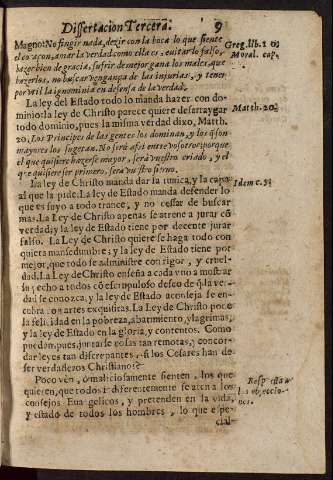 Dissertacion Tercera. 9
Magno: No fingir nada, dezir con la boca lo que siente
el coraçon, amar la verdad como ella es, euitar lo falso,
hazer bien de gracia, sufrir de mejor gana los males, que
hazerlos, no buscar vengança de las injurias, y tener
por vil la ignominia en defensa de la verdad.
Greg. lib. 1 in
Moral. cap.
La ley del Estado todo lo manda hazer con do-
minio: la ley de Christo parece quiere desarraygar
todo dominio, pues la misma verdad dixo, Matth.
Matth. 20.
20. Los Principes de las gentes los dominan, y los q̃ son
mayores los sugetan. No será assi entre vosotros: porque
el que quisiere hazerse mayor, será vuestro criado, y el
que quisiere ser primero, será vuestro sieruo.
La ley de Christo manda dar la tunica, y la capa
Idem c. 5.
al que la pide. La ley de Estado manda defender lo
que es suyo a todo trance, y no cessar de buscar
mas. La Ley de Christo apenas se atreue a jurar cõ
verdad; y la ley de Estado tiene por decente jurar
falso. La Ley de Christo quiere se haga todo con
quieta mansedumbre; y la ley de Estado tiene por
mejor, que todo se administre con rigor, y cruel-
dad. La Ley de Christo enseña a cada vno a mostrar
su pecho a todos cõ escrupuloso deseo de q̃ la ver-
dad se conozca, y la ley de Estado aconseja se en-
cubra con artes exquisitas. La Ley de Christo pone
la felicidad en la pobreza, abatimiento, y lagrimas;
y la ley de Estado en la gloria, y contentos. Como
puedan, pues, juntarse cosas tan remotas, y concor-
dar leyes tan discrepantes, si los Cesares han de
ser verdaderos Christianos?
Poco ven, ò maliciosamente sienten, los que
Respuesta a
las objeccio-
nes.
quieren, que todos indiferentemente se aten a los
consejos Euangelicos, y pretenden en la vida,
y estado de todos los hombres, lo que espe-
cial-